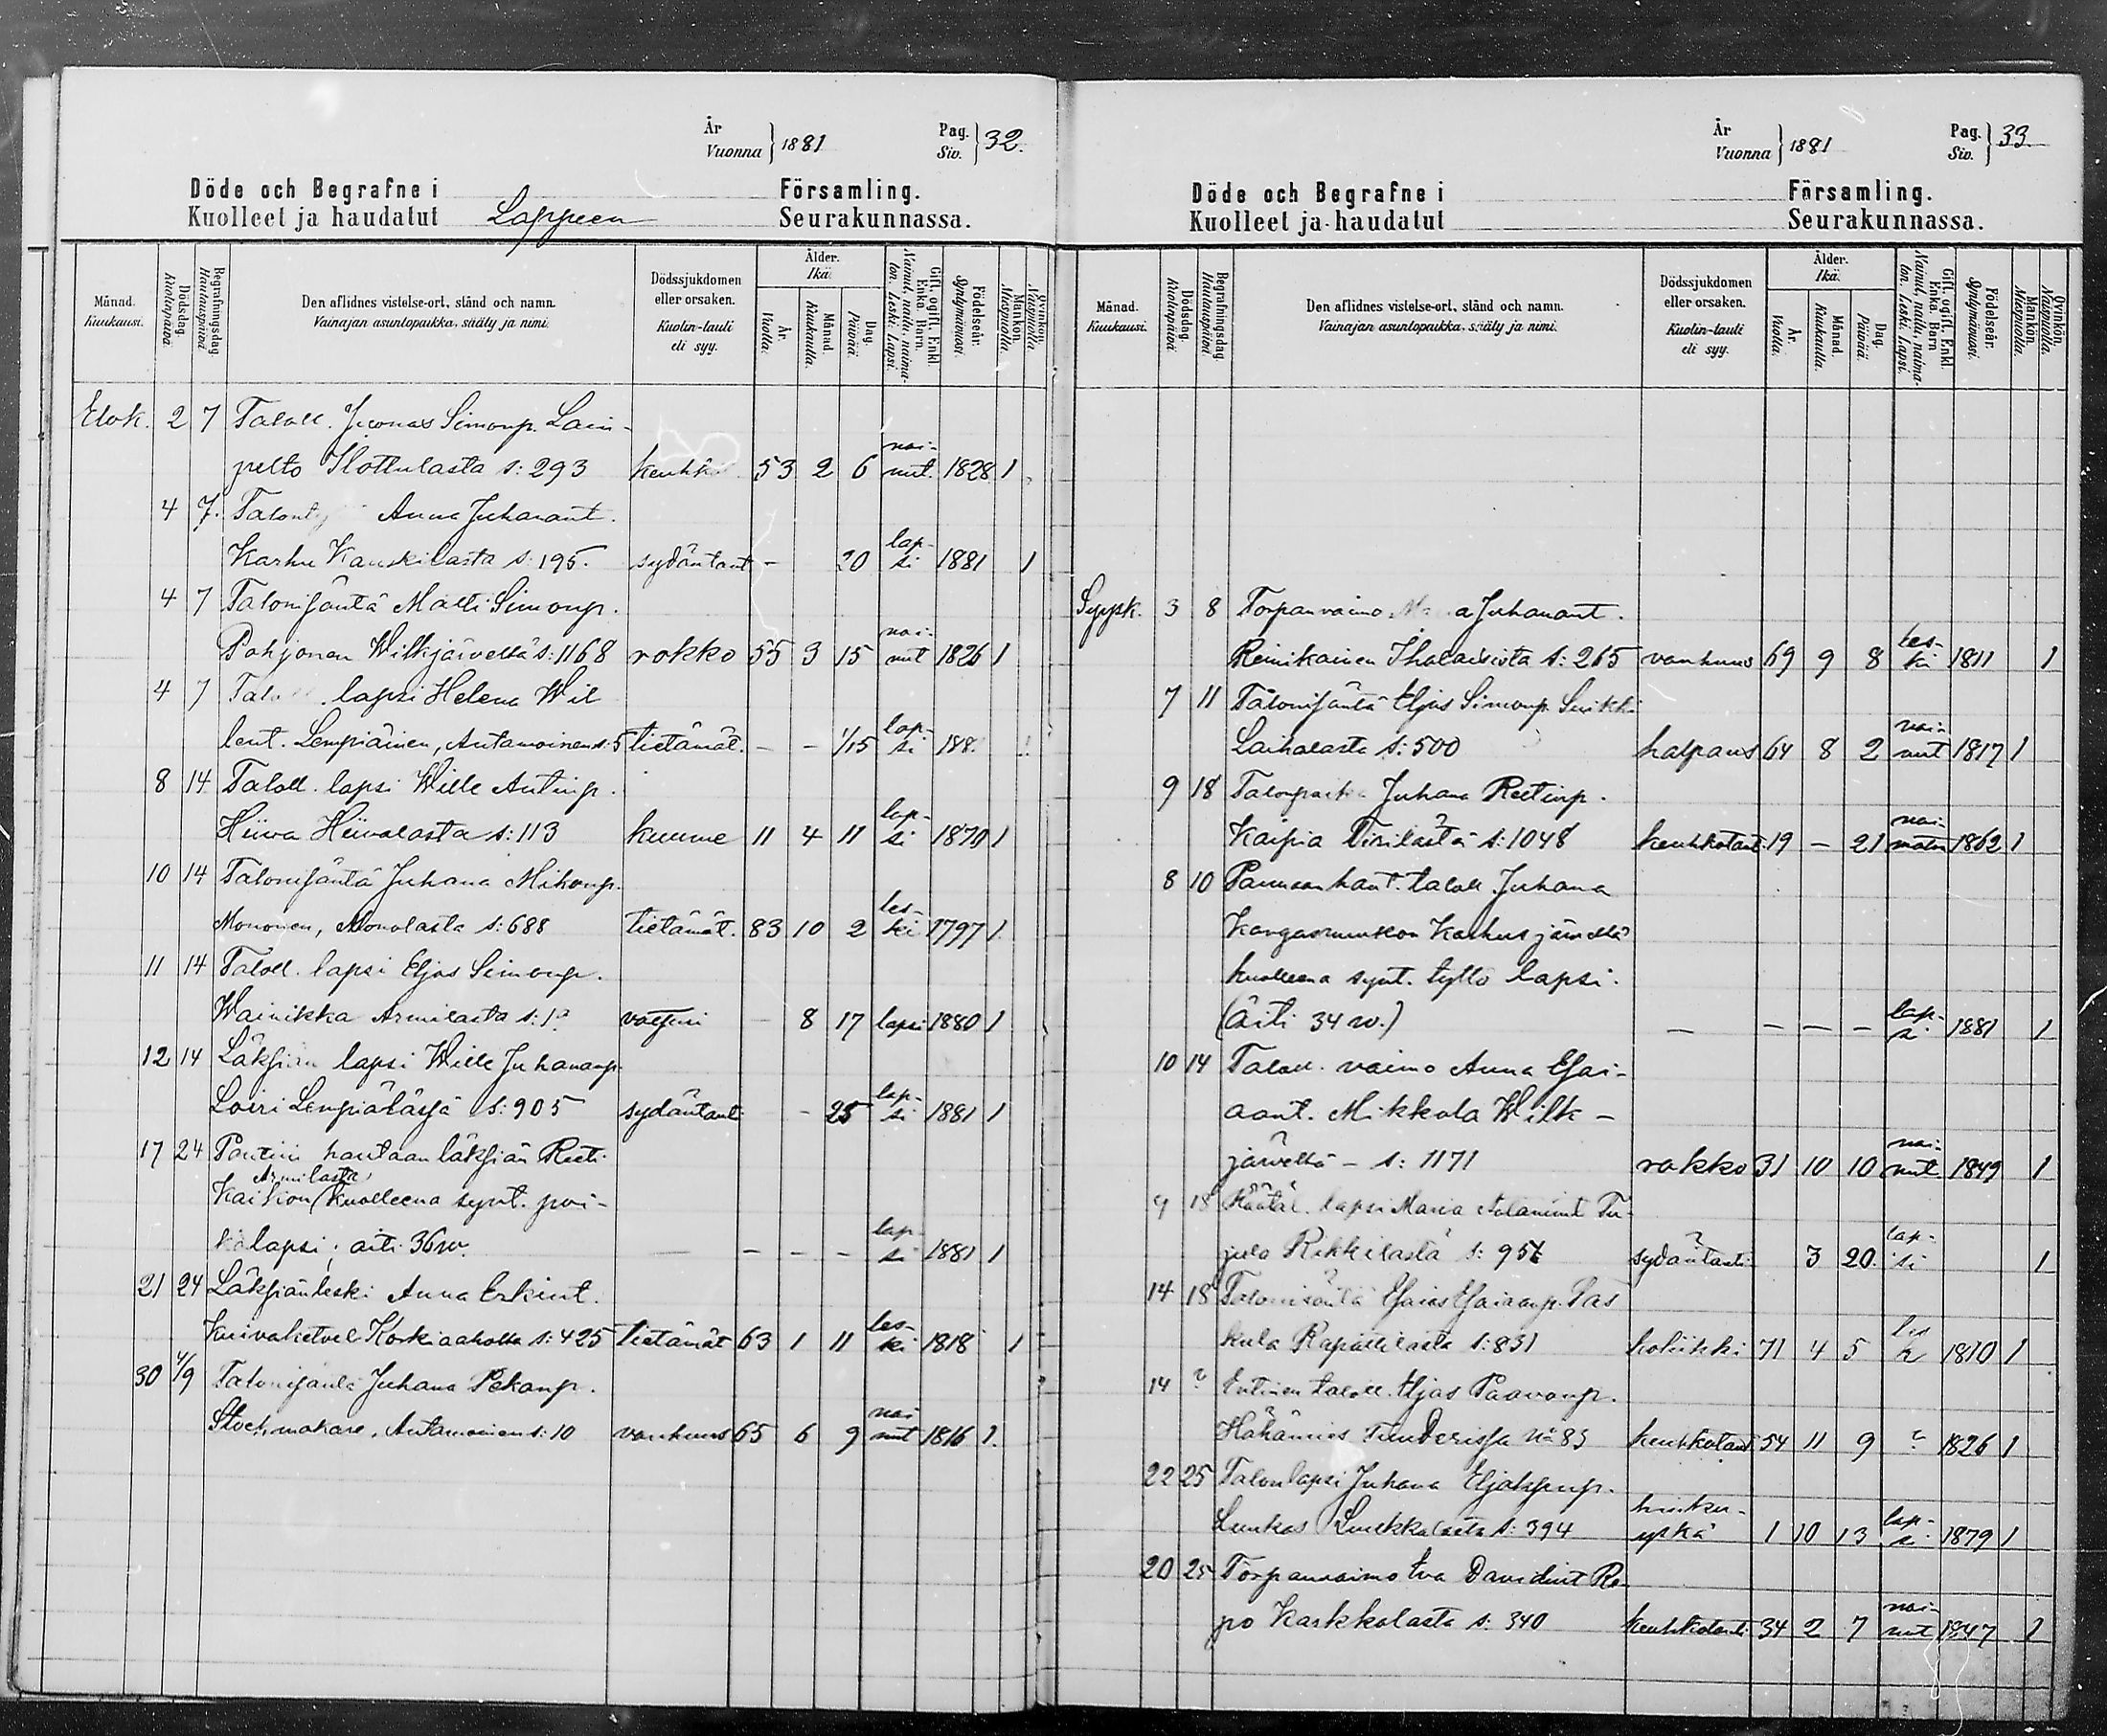 År
Vuonna } 1881
Pag.
Siv. } 32.
Döde och Begrafne i Församling.
Kuolleet ja haudatut Lappeen Seurakunnassa.
Månad. Kuukausi.
Dödsdag. Kuolinpäivä.
Begrafningsdag. Hautauspäivä.
Den aflidnes vistelse-ort, stånd och namn.
Vainajan asuntopaikka, sääty ja nimi.
Dödssjukdomen eller orsaken.
Kuolin-tauti eli syy.
Ålder. Ikä.
År. Vuotta.
Månad. Kuukautta.
Dag. Päivää.
Gift, ogift, Enkl. Enka. Barn.
Nainut, naitu, naimaton. Leski. Lapsi.
Födelseår. Syntymävuosi.
Mankön. Miespuolia.
Qvinkön. Naispuolia.
Elok. 2 7 Taloll. Joonas Simonp. Lain-
pelto Ilottulasta s: 293 keuhko 53 2 6 nai-nut. 1828 1
4 7. Anna Juhanant.
Karhu Kauskilasta s: 195. sydäntaut - 20 lap-si 1881 1
4 7 Talonisäntä Matti Simonp.
Pohjonen Wilkjärveltä s: 1168 rokko 55 3 15 nai-nut 1826 1
4 7 lapsi Helena Wil
lent. Lempiäinen, Hutamoinen s: 5 tietämät. - - 1/15 lap-si 188
8 14 Taloll. lapsi Wille Antinp.
Hiiva Hiivalasta s: 113 kuume 11 4 11 lap-si 1870 1
10 14 Talonisäntä Juhana Mikonp.
Mononen, Monolasta s: 688 tietämät. 83 10 2 les-ki 1797 1.
11 14 Taloll. lapsi Eljas Simonp.
Wainikka Armilasta s: 1 - 8 17 lapsi 1880 1
12 14 Läksiän lapsi Wille Juhananp.
Loiri Lempiälässä s: 905 sydäntaut - 25 lap-si 1881 1
17 24 hautaan läksiän Reeti
Armilasta
Kaihon (kuolleena synt. poi-
kalapsi; äiti 36 w. — - - - lap-si 1881 1
21 24 Läksiänleski Anna Erkint.
Kuivaketvel Korkiaaholta s: 425 tietämät 63 1 11 les-ki 1818 1
30 4/9 Talonisäntä Juhana Pekanp.
Stockmakare, s: 10 vanhuus 65 6 9 nai-nut 1816 1.
År
Vuonna } 1881
Pag.
Siv. } 33
Döde och Begrafne i Församling.
Kuolleet ja haudatut Seurakunnassa.
Månad. Kuukausi.
Dödsdag. Kuolinpäivä.
Begrafningsdag. Hautauspäivä.
Den aflidnes vistelse-ort, stånd och namn.
Vainajan asuntopaikka, sääty ja nimi.
Dödssjukdomen eller orsaken.
Kuolin-tauti eli syy.
Ålder. Ikä.
År. Vuotta.
Månad. Kuukautta.
Dag. Päivää.
Gift, ogift, Enkl. Enka. Barn
Nainut, naitu, naimaton. Leski. Lapsi.
Födelseår. Syntymävuosi.
Mankön. Miespuolia.
Qvinkön. Naispuolia.
Syysk. 3 8 Torpanvaimo Juhanant.
Reinikainen Ihalaisista s: 265 vanhuus 69 9 8 les-ki 1811 1
7 11 Talonisäntä Eljas Simonp. Suikki
Laihalasta s: 500 halpaus 64 8 2 nai-nut 1817 1
9 18 Talonpoika Juhana Reetinp.
Kaipia Tirilästä s: 1048 keuhkotaut 19 — 21 nai-maton 1862 1
8 10 Pannaan haut. taloll. Juhana
Kangasmuukon Karhusjärveltä
kuolleena synt. tyttö lapsi.
(Äiti 34 w.) — — — — lap-si 1881 1
10 14 Taloll. vaimo Anna Esai-
aant. Mikkola Wilk-
järveltä - s: 1171 rokko 31 10 10 nai-nut. 1849 1
9 18 Räätäl. lapsi Maria Adamint Tu-
julo Rikkilästä s: 956 sydäntauti 3 20. lap-si 1
14 18 Talonisäntä Esaias Esaiaanp. Tas
kula Rapattilasta s: 831 koliikki 71 4 5 1810 1
14 ? Entinen taloll. Eljas Paavonp.
Hähämies Tunderissa No 89 keuhkotaut 54 11 9 ? 1826 1
22 25 Talonlapsi Juhana Eljaksenp.
Luukas Luukkalasta s: 394 hinku-yskä 1 10 13 lap-si 1879 1
20 25 Torpanvaimo Eva Davidint Re-
po Karkkolasta s: 340 keuhkotauti 34 2 7 nai-nut 1847 1